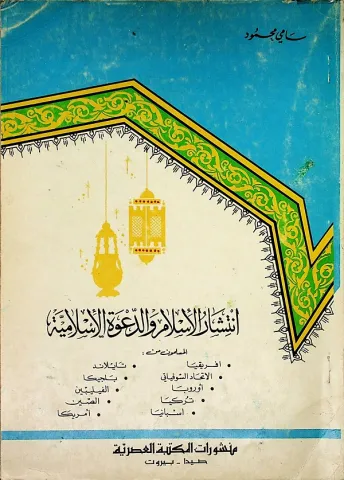 سامي محمود
انتشار الإسلام والدعوة الإسلامية
المسلمون من :
• افريقيا
• الاتحاد السوفياتي
• أوروبا
• تركيا
• اسبانيا
• تايلاند
• بلجيكا
• الفيليبين
• الصين
• أمريكا
منشورات المكتبة العصرية
صيدا - بيروت